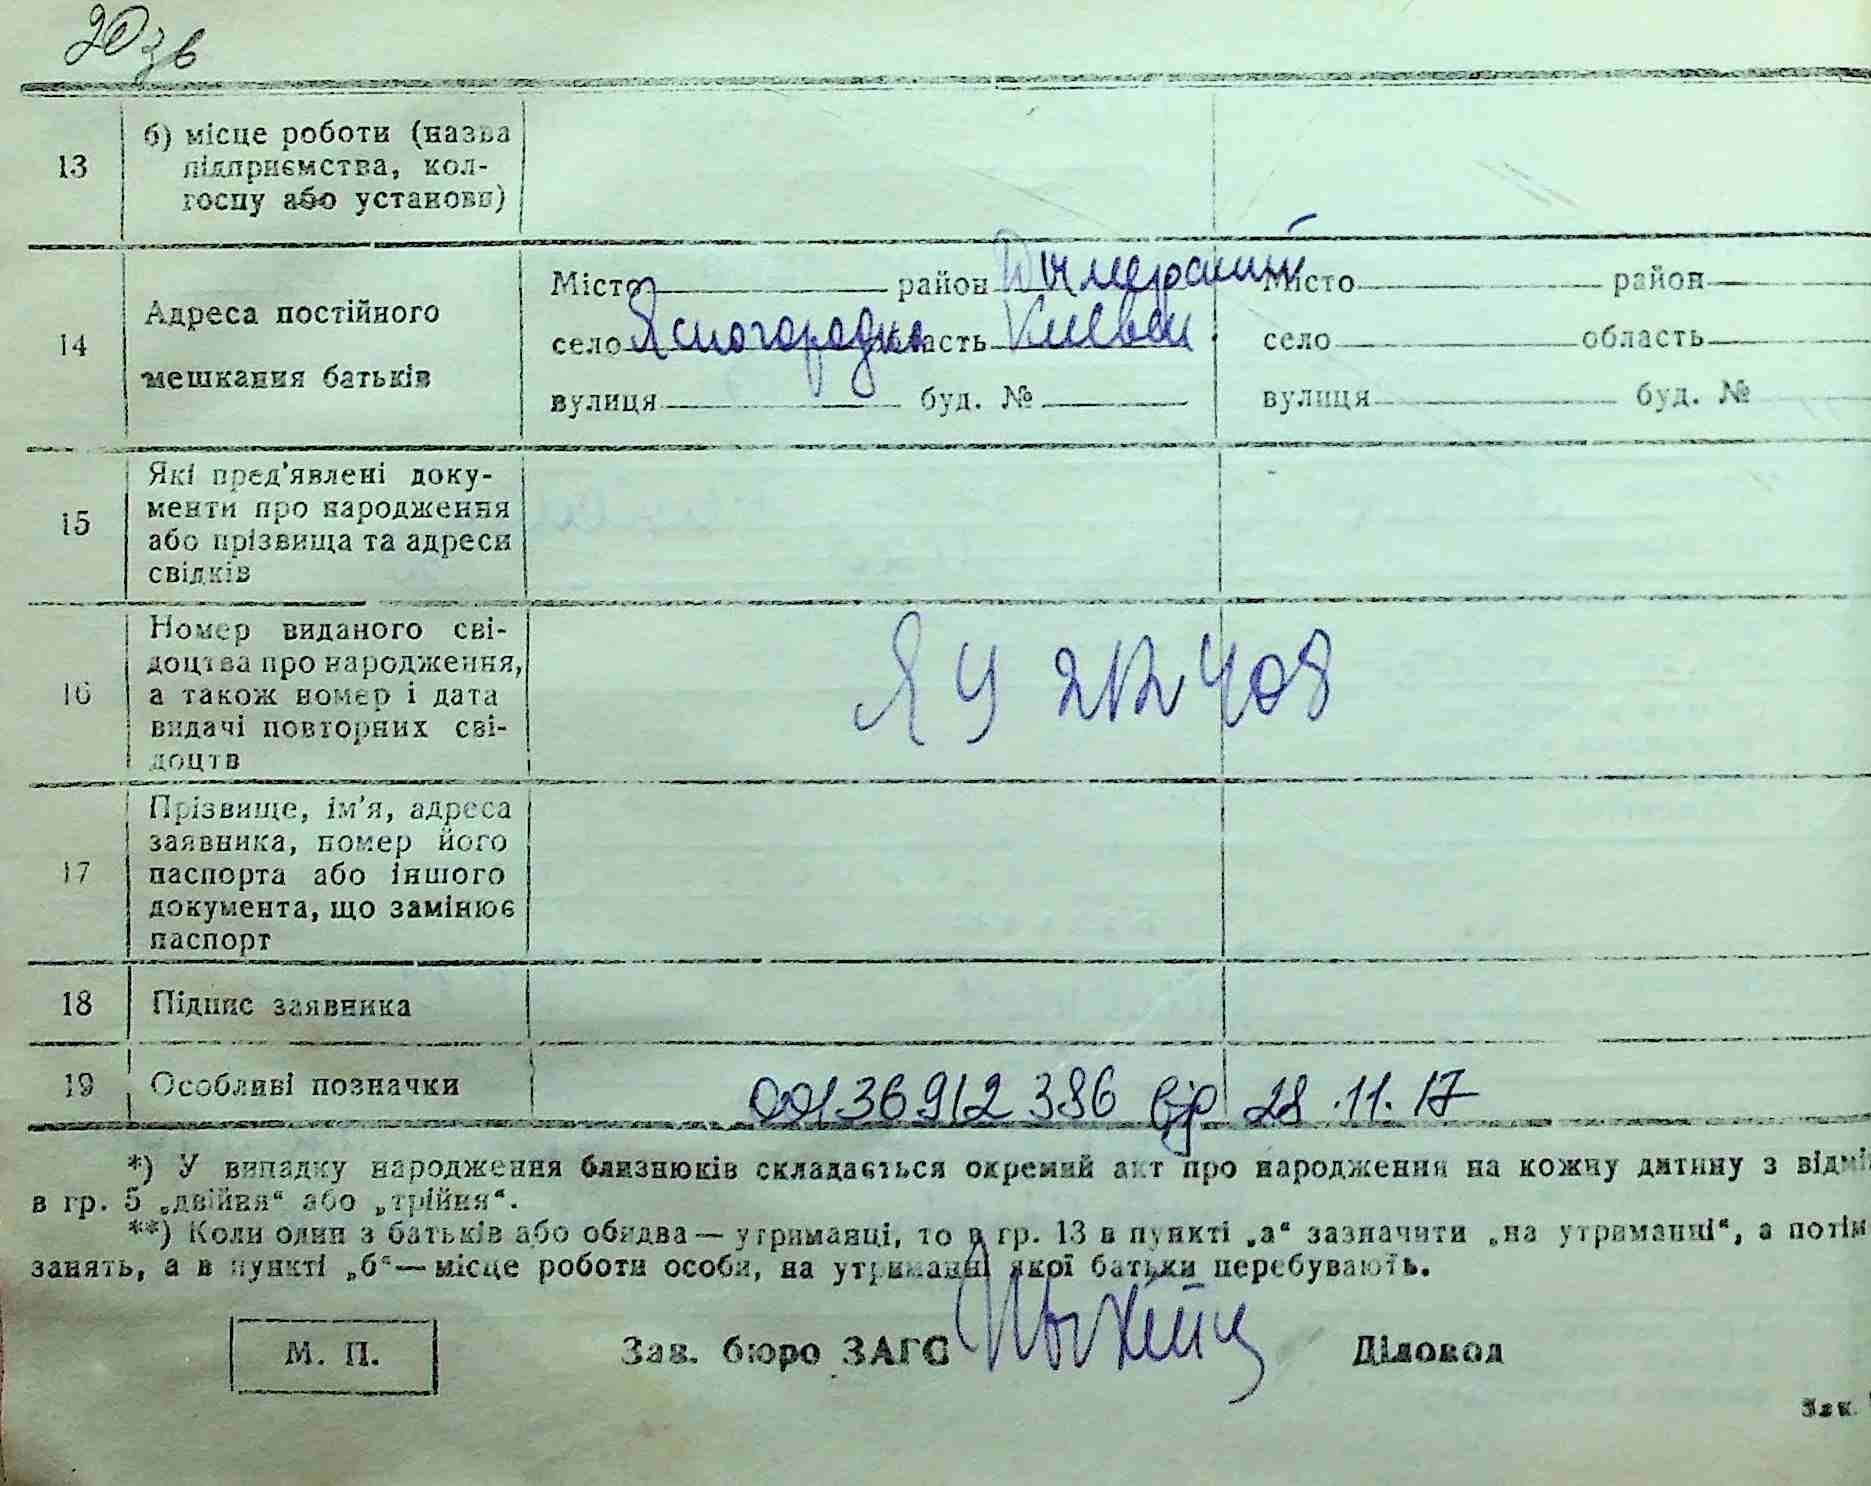 20 зв
13 б) місце роботи (назва
підприємства, кол-
госпу або установи)
14 Адреса постійного
мешкання батьків
Місто район Димерский Місто район
село Ясногородка область Києвск село область
вулиця буд. № вулиця буд. №
15 Які пред'явлені доку-
менти про народження
або прізвища та адреси
свідків
16 Номер виданого сві-
доцтва про народження,
а також номер і дата
видачі повторних сві-
доцтв
ЯЧ 212408
17 Прізвище, ім'я, адреса
заявника, номер його
паспорта або іншого
документа, що замінює
паспорт
18 Підпис заявника
19 Особливі позначки 00136912386 від 28.11.17
*) У випадку народження близнюків складається окремий акт про народження на кожну дитину з відмі
в гр. 5 „двійня“ або „трійня“.
**) Коли один з батьків або обидва — утриманці, то в гр. 13 в пункті „а“ зазначити „на утриманні“, а потім
занять, а в пункті „б“ — місце роботи особи, на утриманні якої батьки перебувають.
М. П. Зав. бюро ЗАГС Діловод
Зак.